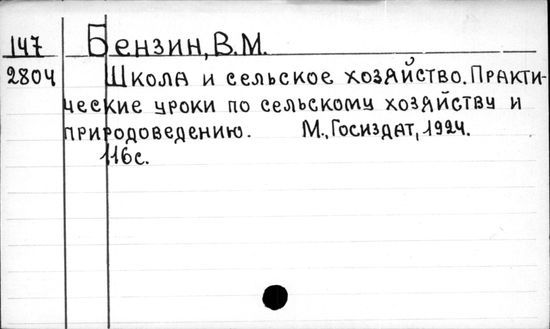 147 Бензин, В.М.
2804 Школа и сельское хозяйство. Практи-
ческие уроки по сельскому хозяйству и
природоведению. М., Госиздат, 1924.
116с.